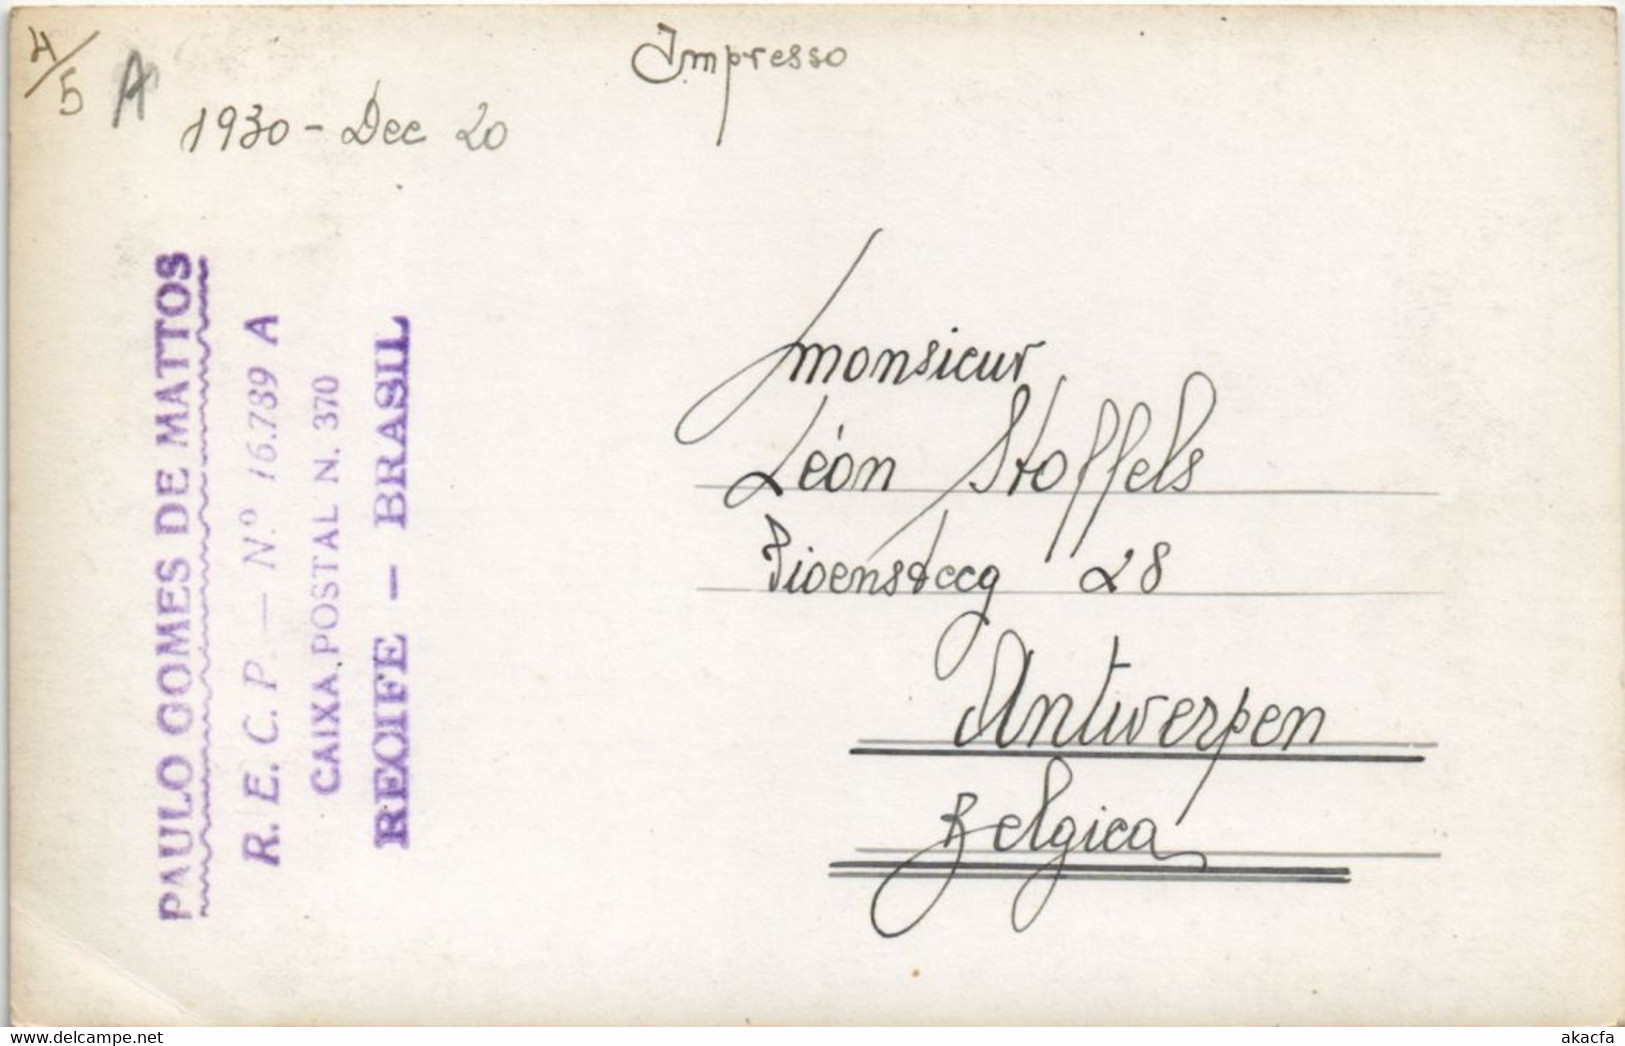 4/5 A
Impresso
1930 - Dec 20
PAULO GOMES DE MATTOS
R. E. C. P. — N.º 16.789 A
CAIXA POSTAL N. 370
RECIFE — BRASIL
Monsieur
Léon Stoffels
28
Antwerpen
Belgica
www.delcampe.net
akacfa